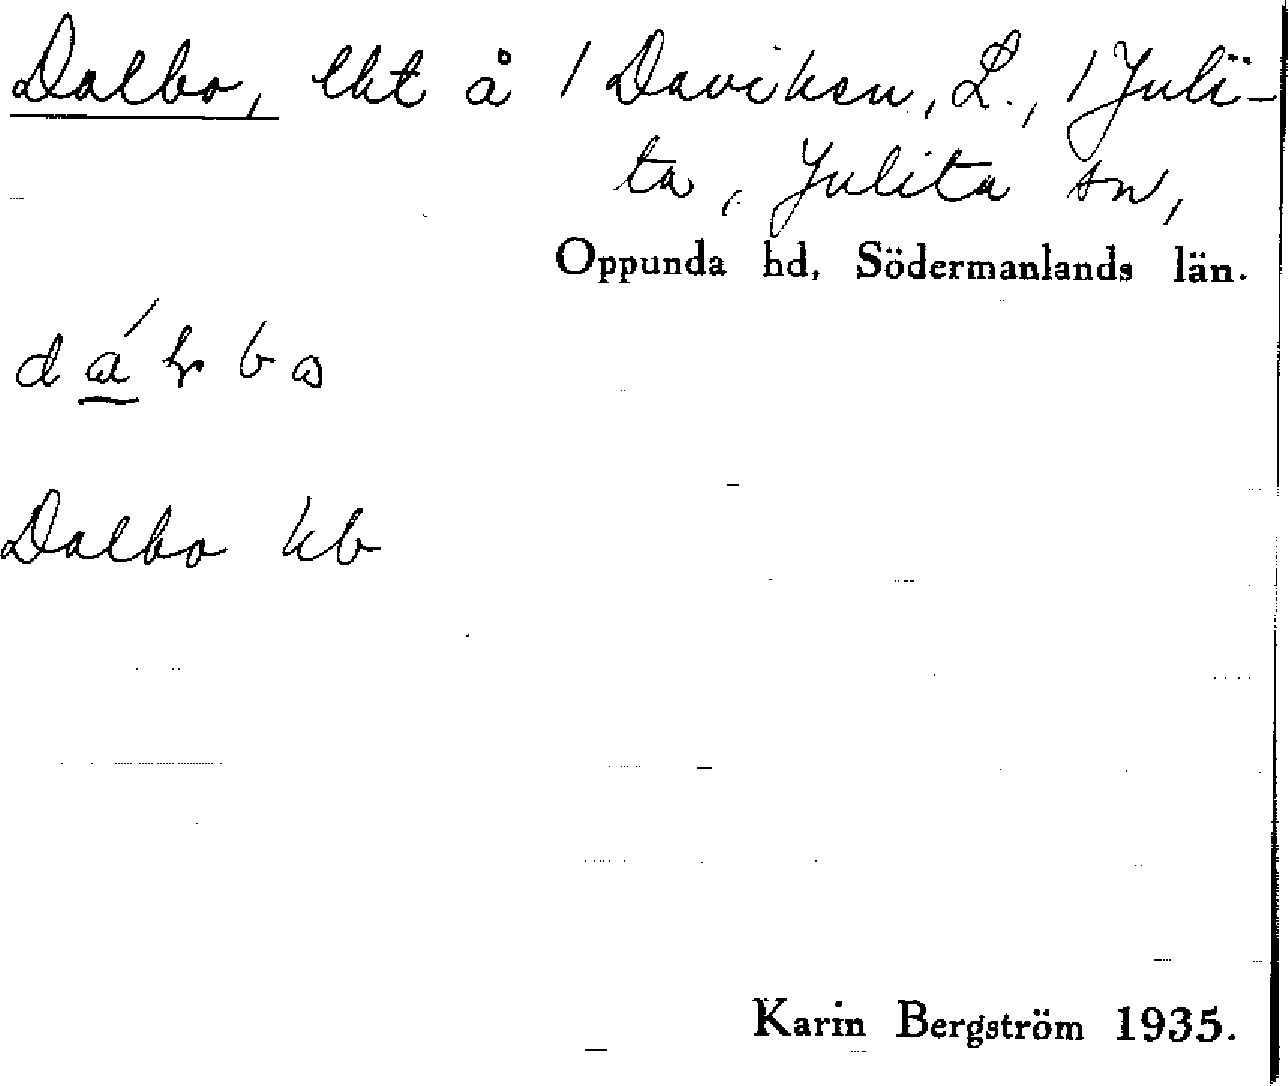 Dalbo, lht å / Daviken, L., / Juli-
ta, Julita sn,
Oppunda hd, Södermanlands län.
Dalbo kb
Karin Bergström 1935.